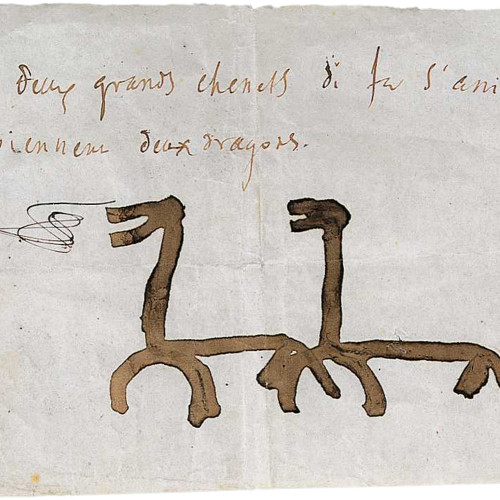 deux grands chenets de fer s'ani
viennent deux dragons.